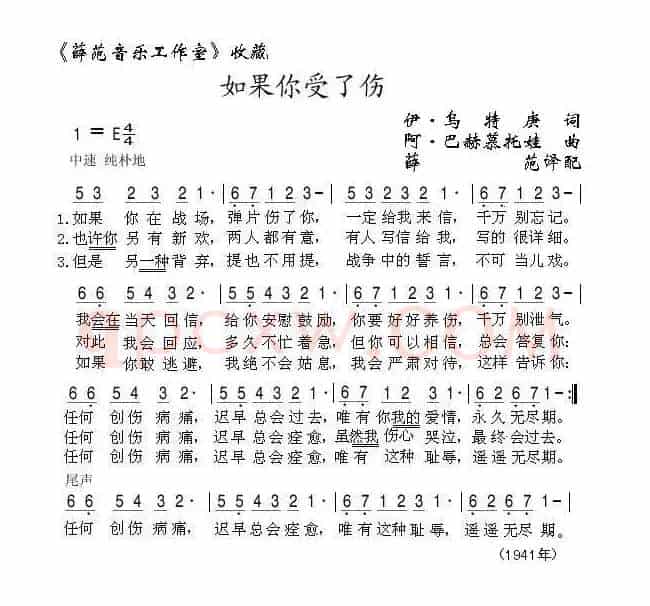 《薛范音乐工作室》收藏
如果你受了伤
伊·乌特庚 词
1 = E 4/4
阿·巴赫慕托娃 曲
中速 纯朴地
薛 范译配
5 3 2 3 2 1· | 6 7 1 2 3 — | 5 3 2 3 2 1· | 6 7 1 2 3 — |
1.如果 你在战场, 弹片伤了你, 一定给我来信, 千万别忘记。
2.也许你另有新欢, 两人都有意, 有人写信给我, 写的很详细。
3.但是 另一种背弃, 提也不用提, 战争中的誓言, 不可当儿戏。
6 6 5 4 3 2 | 5 5 4 3 2 1 | 6 7 1 2 3 1 | 6 7 1 2 3 — |
我会在当天回信, 给你安慰鼓励, 你要好好养伤, 千万别泄气。
对此 我会回应, 多久不忙着急, 但你可以相信, 总会答复你:
如果 你敢逃避, 我绝不会姑息, 我会严肃对待, 这样告诉你:
6 6 5 4 3 2 | 5 5 4 3 2 1 | 6 7 1 2 3 1 | 6 2 1 7 6 1 — :‖
任何 创伤病痛, 迟早总会过去, 唯有你我的爱情, 永久无尽期。
任何 创伤病痛, 迟早总会痊愈, 虽然我伤心哭泣, 最终会过去。
任何 创伤病痛, 迟早总会痊愈, 唯有 这种耻辱, 遥遥无尽期。
尾声
6 6 5 4 3 2 | 5 5 4 3 2 1 | 6 7 1 2 3 1 | 6 2 1 7 6 — ‖
任何 创伤病痛, 迟早总会痊愈, 唯有这种耻辱, 遥遥无尽期。
(1941年)